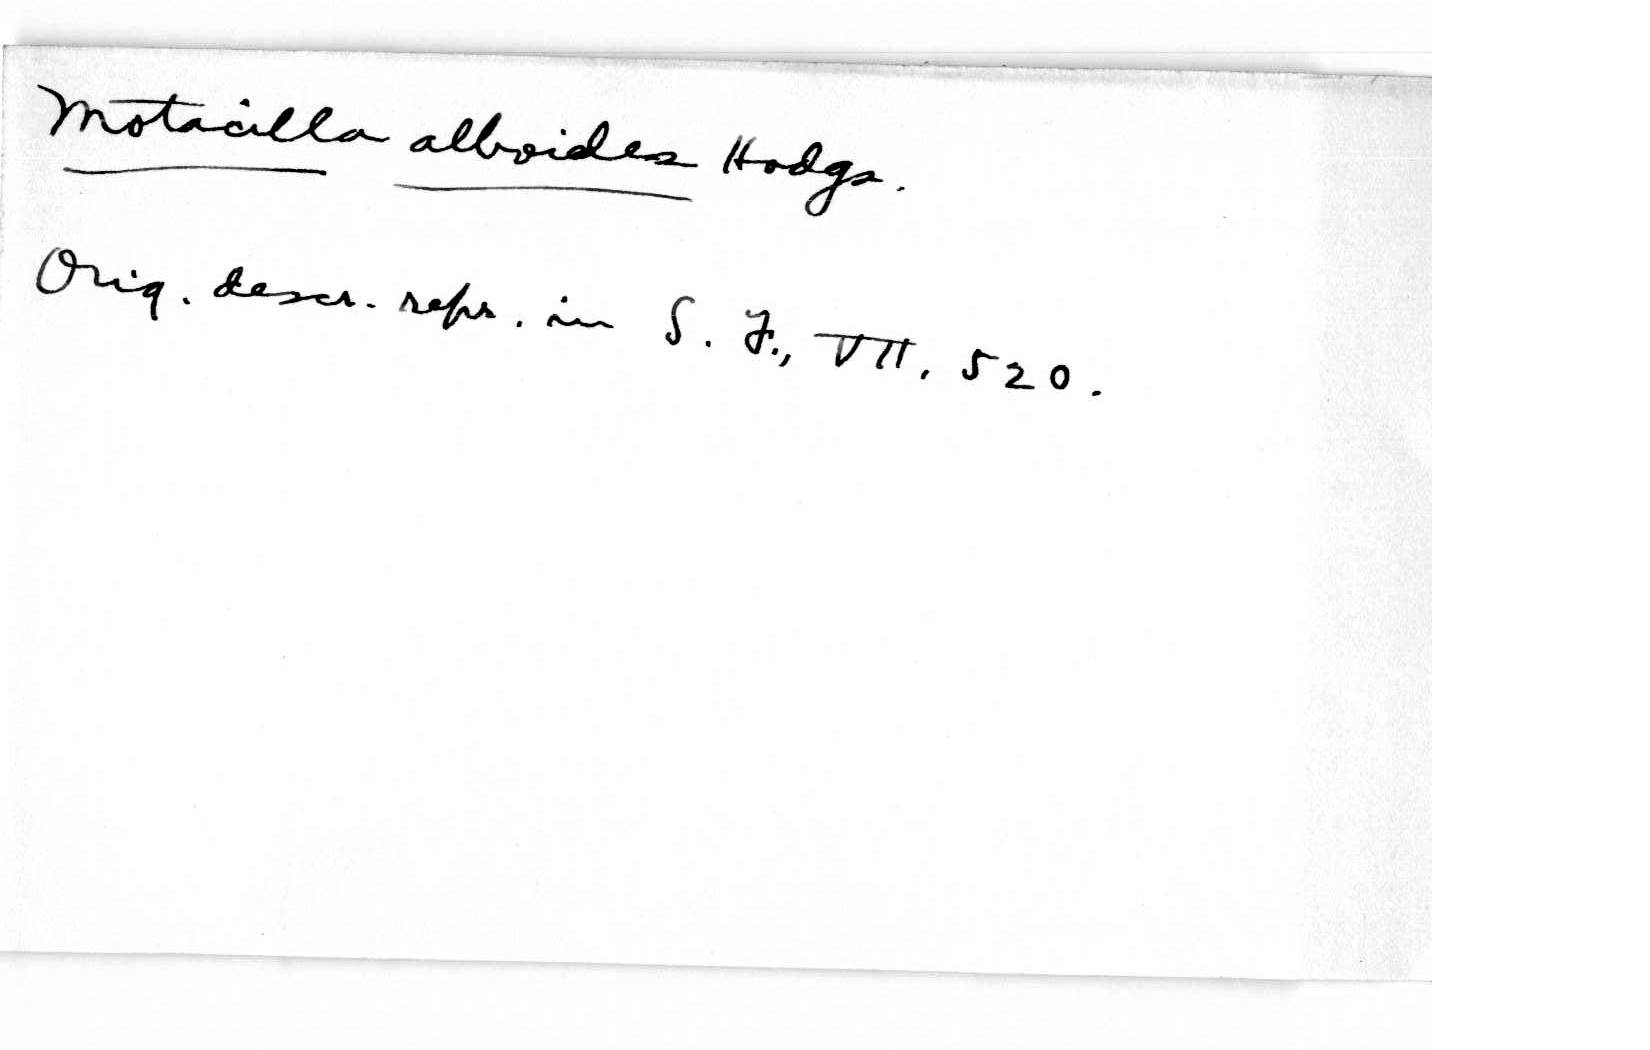 Motacilla alboides Hodgs.
Orig. descr. repr. in S. F., VII, 520.